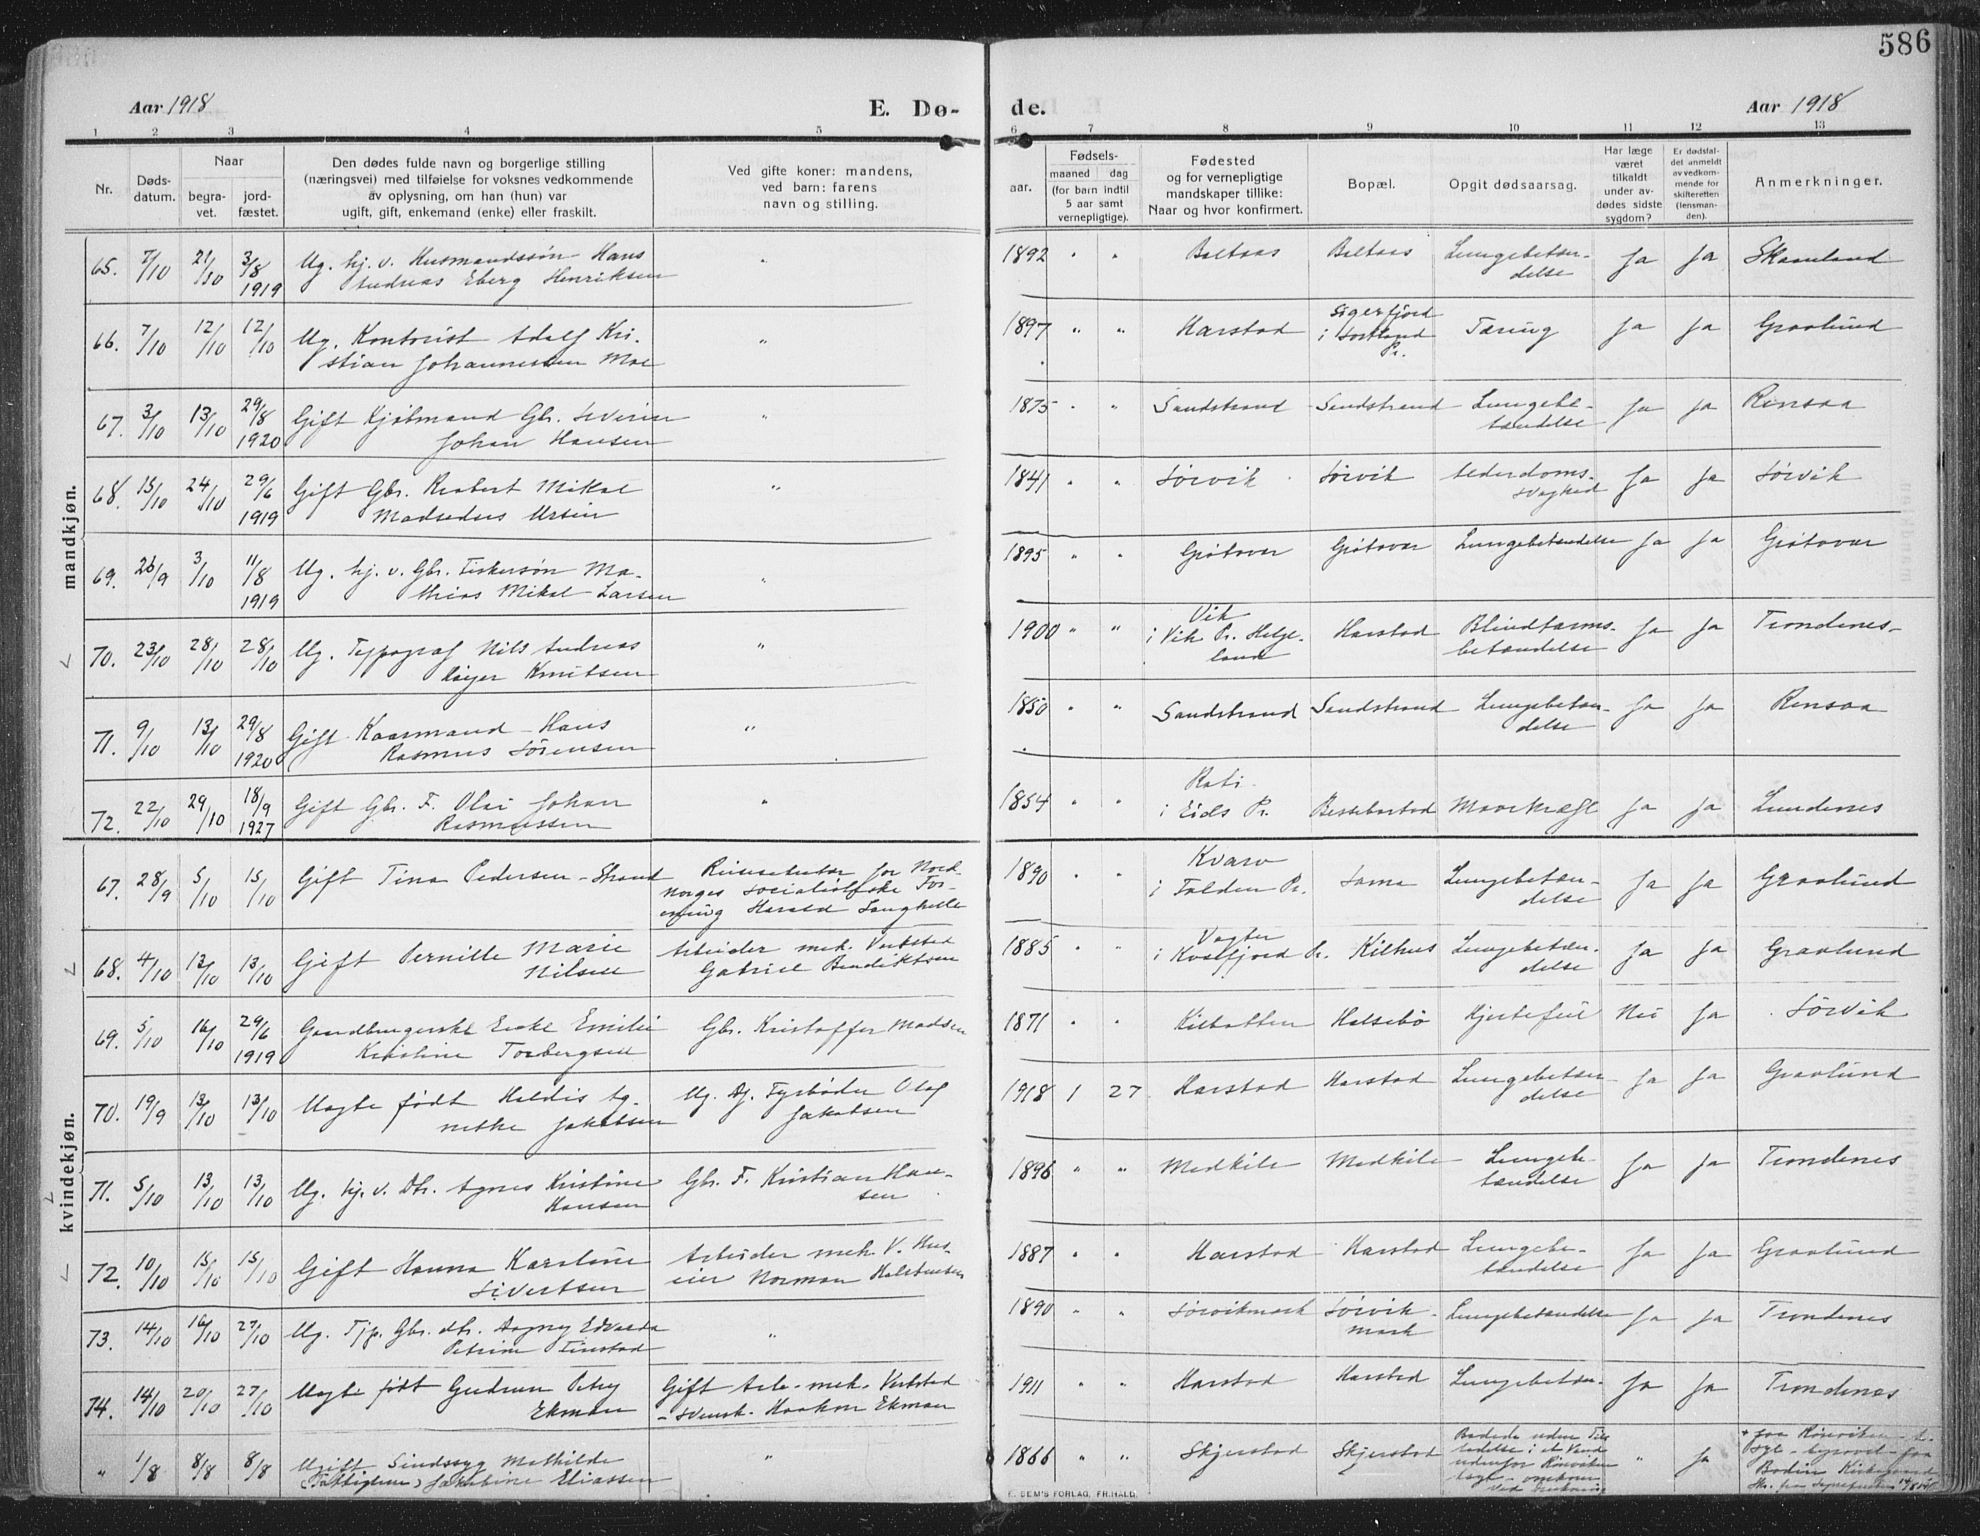 586
Aar 1918 E. Dø- de. Aar 1918
1 2 3 4 5 6 7 8 9 10 11 12 13
Nr. Døds-datum. Naar begra-vet. jord-fæstet. Den dødes fulde navn og borgerlige stilling (næringsvei) med tilføielse for voksnes vedkommende av oplysning, om han (hun) var ugift, gift, enkemand (enke) eller fraskilt. Ved gifte koner: mandens, ved barn: farens navn og stilling. aar. Fødsels- maaned dag (for barn indtil 5 aar samt vernepligtige). Fødested og for vernepligtige mandskaper tillike: Naar og hvor konfirmert. Bopæl. Opgit dødsaarsag. Har læge været tilkaldt under av-dødes sidste sygdom? Er dødsfal-det anmeldt av vedkom-mende for skifteretten (lensman-den). Anmerkninger.
mandkjøn.
65. 7/10 21/10 3/8 1919 Ug. hj. v. Husmandssøn Hans Andreas Eberg Henriksen " 1892 " " Boltaas Boltaas Lungebetæn-delse Ja Ja Skaanland
66. 7/10 12/10 12/10 Ug. Kontorist Adolf Kri-stian Johannessen Moe " 1897 " " Harstad Sigerfjord i Sortland Pr. Tæring Ja Ja Gravlund
67. 3/10 13/10 29/8 1920 Gift Kjøbmand Gbr. Severin Johan Hansen " 1875 " " Sandstrand Sandstrand Lungebe-tændelse Ja Ja Rensaa
68. 15/10 24/10 29/6 1919 Gift Gbr. Mikal Madseds " 1841 " " Sørvik Sørvik Alderdoms-svaghed Ja Ja Sørvik
69. 26/9 3/10 11/8 1919 Ug. hj. v. Gbr. Fiskersøn Ma-thias Mikal Larsen " 1895 " " Grøtavær Grøtavær Lungebetændelse Ja Ja Grøtavær
70. 23/10 28/10 28/10 Ug. Typograf Nils Andreas Knutsen " 1900 " " Vik i Vik Pr. Helge-land Harstad Blindtarms-betændelse Ja Ja Trondenes
71. 9/10 13/10 29/8 1920 Gift Kaarmand Hans Rasmus Sørensen " 1850 " " Sandstrand Sandstrand Lungebetæn-delse Ja Ja Rensaa
72. 22/10 29/10 18/9 1927 Gift Gbr. F. Olai Johan Rasmussen " 1854 " " i Eids Pr. Bessebostad Mavekræft Ja Ja Lundenes
kvindekjøn.
67. 28/9 5/10 15/10 Gift Tina Pedersen-Strand Reisesekretær for Nord-norges Socialistiske For-ening Harald Langhelle 1890 " " Kvarv i Folden Pr. Sama Lungebetæn-delse Ja Ja Gravlund
68. 4/10 13/10 13/10 Gift Pernille Marie Nilsen Arbeider mek. Verksted Gabriel Bendiktsen 1885 " " i Kvæfjord Pr. Kilhus Lungebetæn-delse Ja Ja Gravlund
69. 5/10 16/10 29/6 1919 Gaardbrugerske Enke Emilie Kristine Torbergsen Gbr. Kristoffer Madsen 1871 " " Kilbotten Halsebø Hjertefeil Nei Ja Sørvik
70. 19/9 13/10 13/10 Uegte født Haldis Ag-nethe Jakobsen Ug. Dj. Fyrbøder Olaf Jakobsen 1918 1 27 Harstad Harstad Lungebetæn-delse Ja Ja Gravlund
71. 5/10 13/10 13/10 Ug. hj. v. Dtr. Agnes Kristine Hansen Gbr. F. Kristian Han-sen 1896 " " Medkile Medkile Lungebe-tændelse Ja Ja Trondenes
72. 10/10 15/10 15/10 Gift Hanna Karoline Sivertsen Arbeider mek. V. Hus-eier Norman 1887 " " Harstad Harstad Lungebe-tændelse Ja Ja Gravlund
73. 14/10 16/10 27/10 Ug. Tjp. Gbr. dtr. Dagny Edvarda Petrine Finstad " 1890 " " Sørvikmark Sørvik-mark Lungebetændelse Ja Ja Trondenes
74. 14/10 20/10 27/10 Uegte født Gudrun Petry Ekman Gift Arb. mek. Verksted - svensk. Haakon Ekman 1911 " " Harstad Harstad Lungebetæn- Ja Ja Trondenes
" 1/8 8/8 8/8 Ugift Sindssyg Mathilde (Fattiglem) Jakobine Eliassen " 1866 Skjerstad Skjerstad Badede uden Til-ladelse i et Vand udenfor Rønvikens asyl - omkom ved Drukning " Ja + paa Rønviken A-syl - begravet paa Bodin Kirkegaard
E. SEM'S FORLAG, FR.HALD.